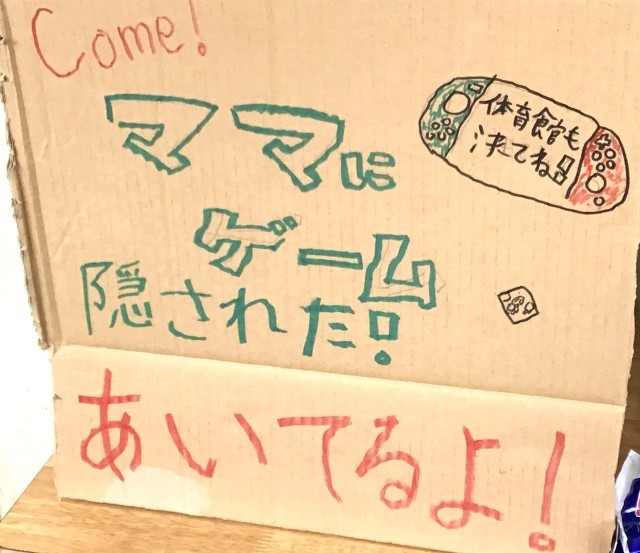 Come!
ママに
ゲーム
隠された!
体育館も
決てね!!
あいてるよ!